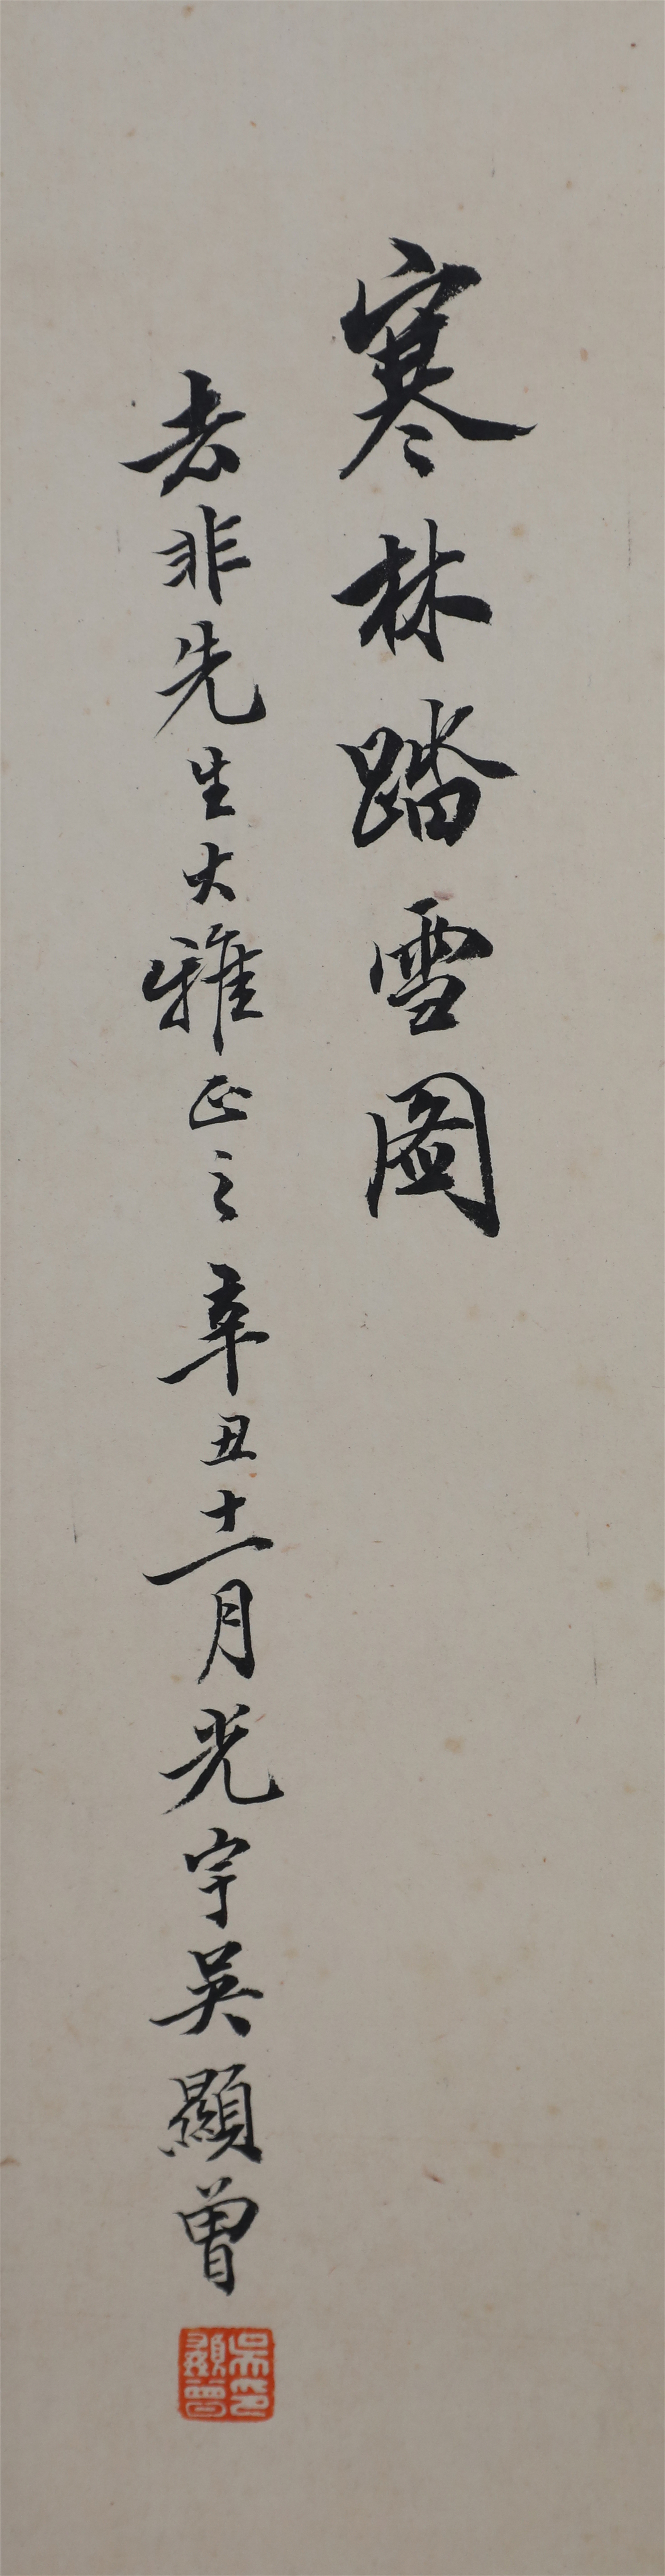 寒林踏雪圖
去非先生大雅正之辛丑十二月光宇吳顯曾
吳顯曾印